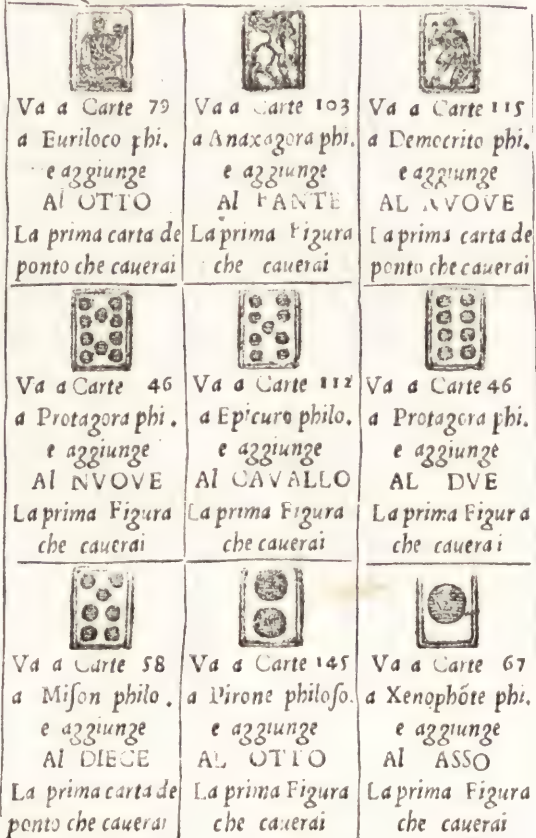 Va a Carte 79
a Euriloco phi.
e aggiunge
Al OTTO
La prima carta de
ponto che cauerai
Va a Carte 103
a Anaxagora phi.
e aggiunge
Al FANTE
La prima Figura
che cauerai
Va a Carte 115
a Democrito phi.
e aggiunge
AL NVOVE
La prima carta de
ponto che cauerai
Va a Carte 46
a Protagora phi.
e aggiunge
Al NVOVE
La prima Figura
che cauerai
Va a Carte 112
a Epicuro philo.
e aggiunge
Al CAVALLO
La prima Figura
che cauerai
Va a Carte 46
a Protagora phi.
e aggiunge
AL DVE
La prima Figura
che cauerai
Va a Carte 58
a Miſon philo.
e aggiunge
Al DIECE
La prima carta de
ponto che cauerai
Va a Carte 145
a Pirone philoſo.
e aggiunge
AL OTTO
La prima Figura
che cauerai
Va a Carte 67
a Xenophõte phi.
e aggiunge
Al ASSO
La prima Figura
che cauerai